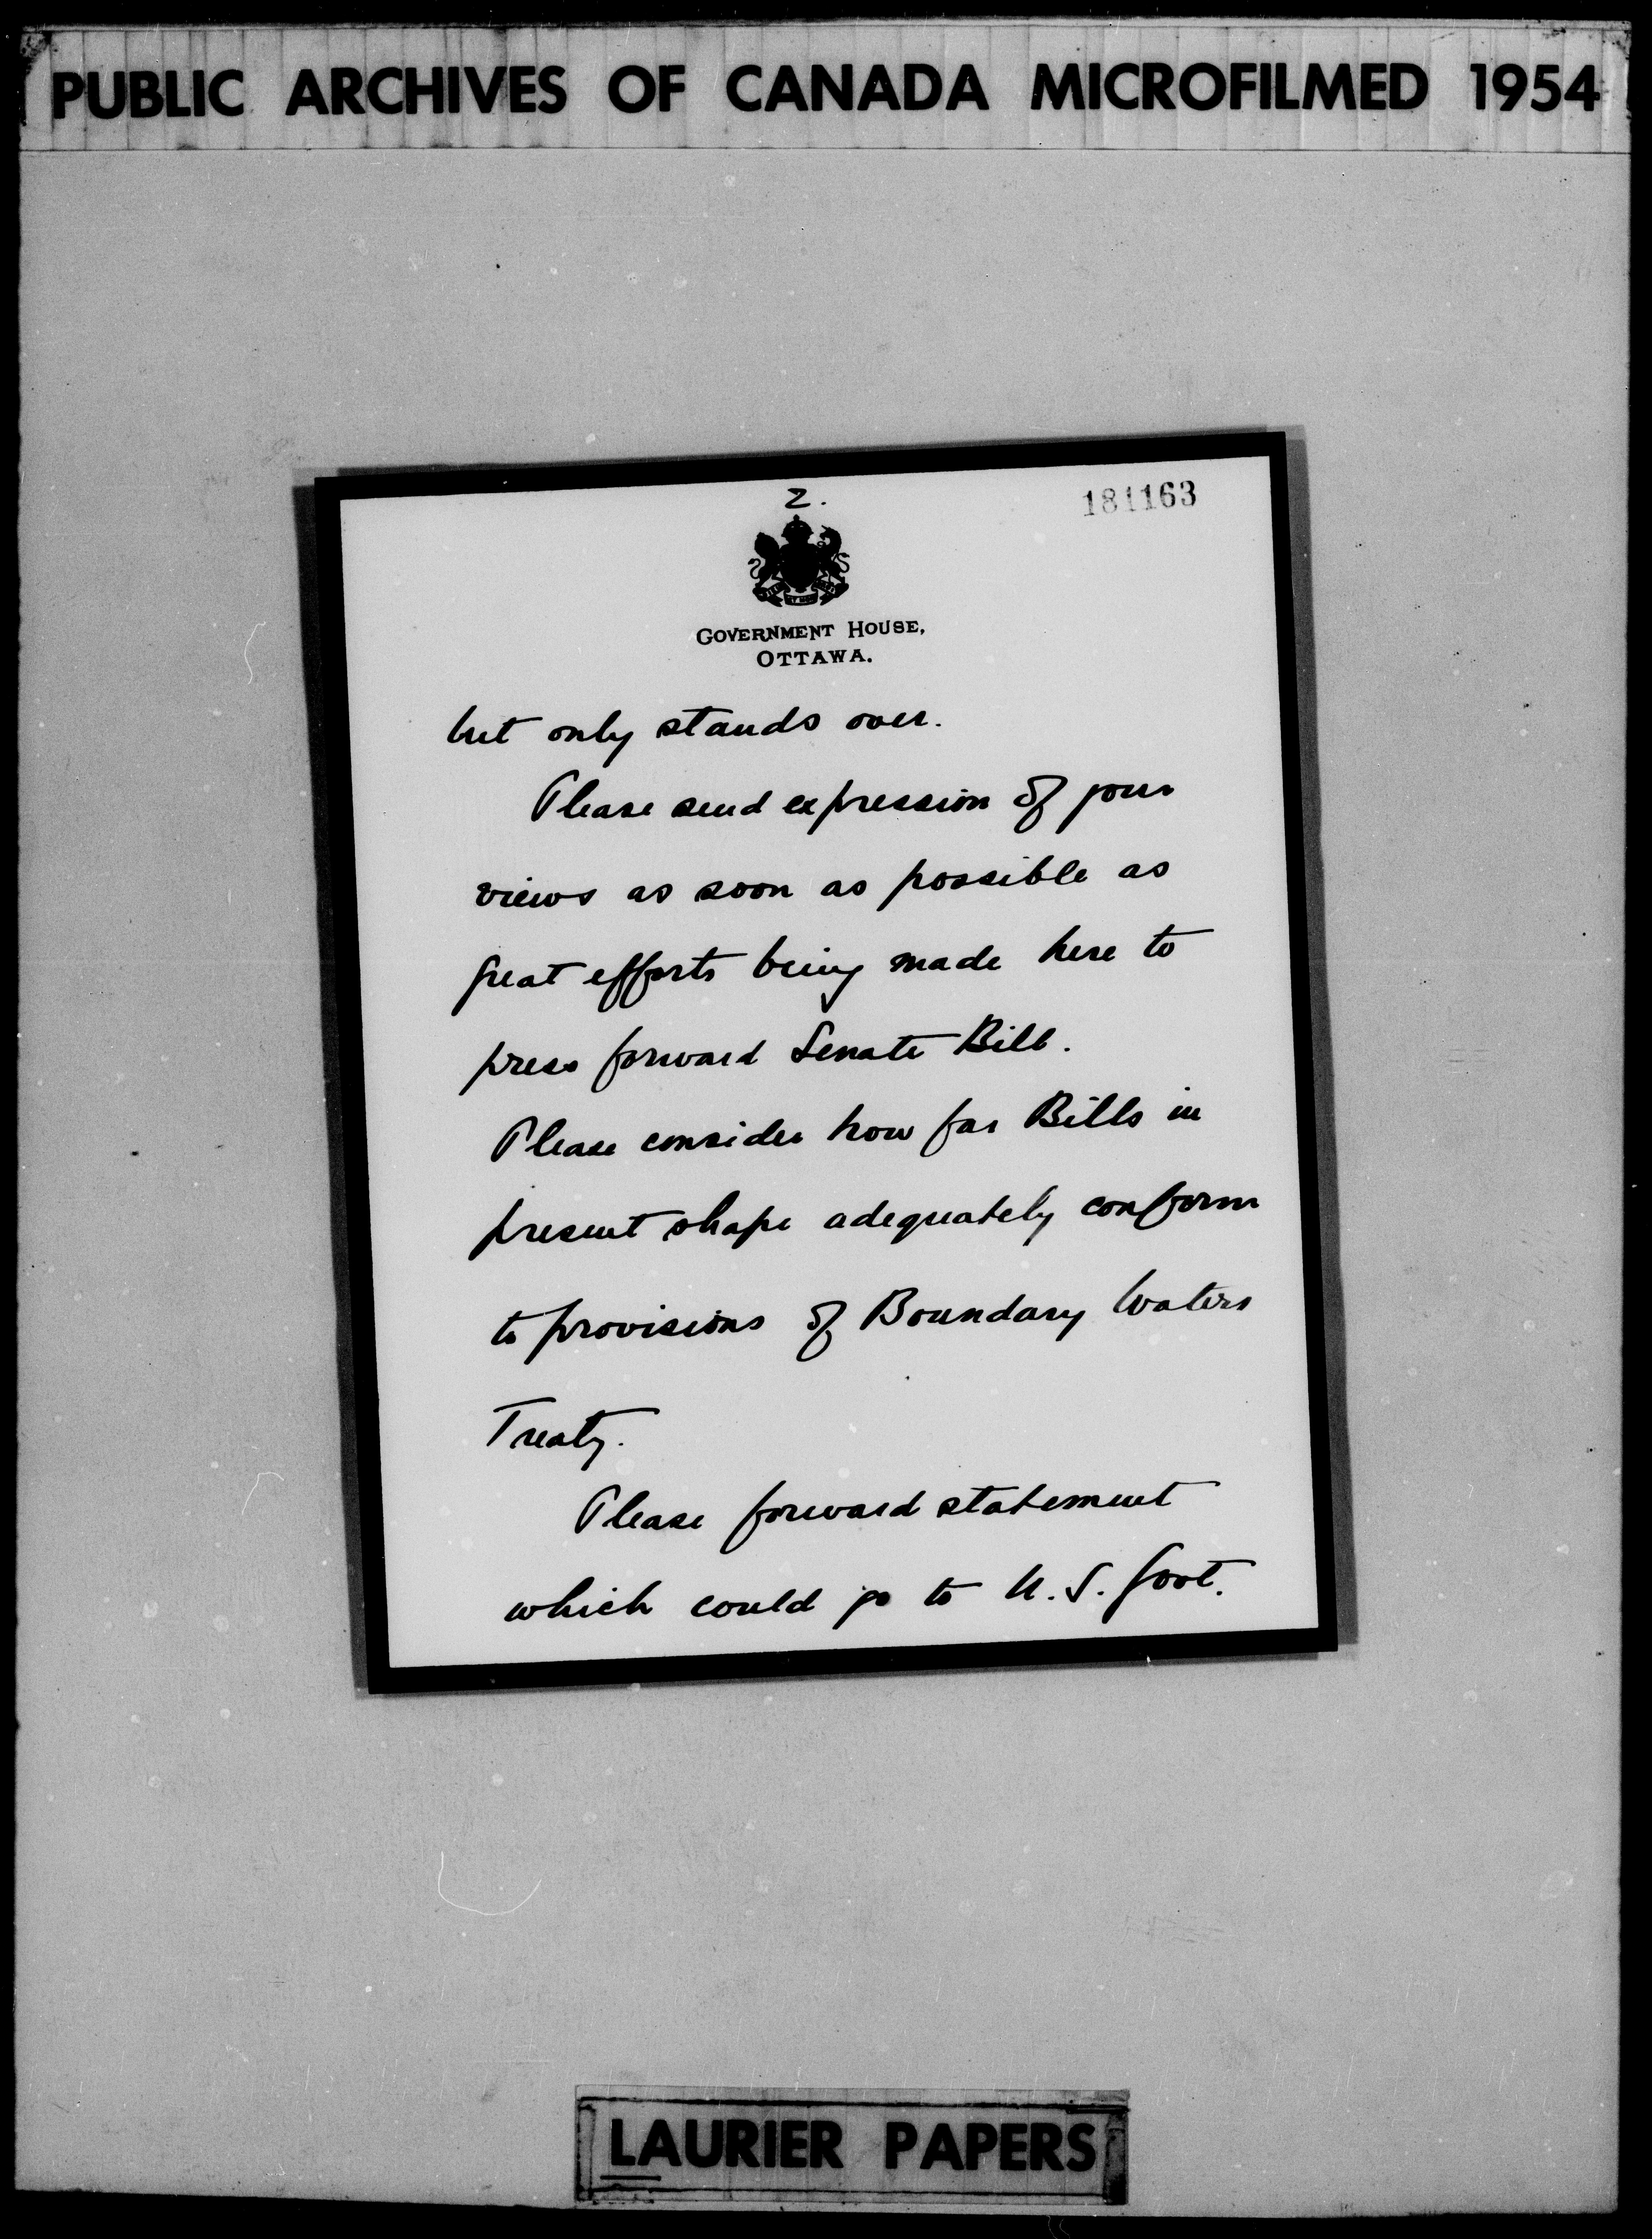 PUBLIC ARCHIVES OF CANADA MICROFILMED 1954
2.
181163
GOVERNMENT HOUSE,
OTTAWA.
but only stands over.
Please send expression of your
views as soon as possible as
great efforts being made here to
press forward Senate Bill.
Please consider how far Bills in
present shape adequately conform
to provisions of Boundary Waters
Treaty.
Please forward statement
which could go to U.S. Govt.
LAURIER PAPERS